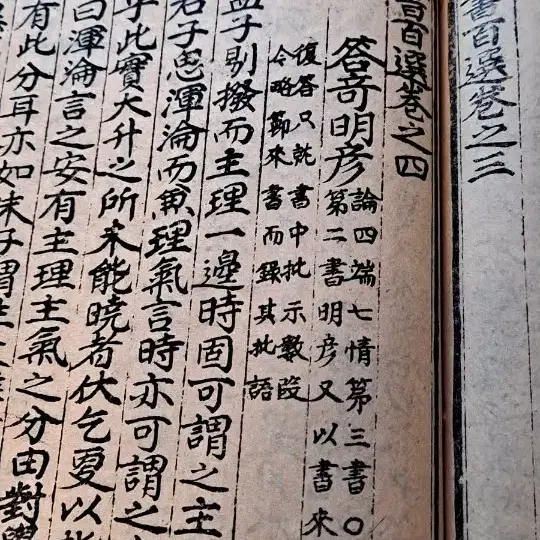 書百選卷之三
書百選卷之四
答奇明彦
論四端七情第三書○
第二書明彦又以書來
復答只就書中批示數段
今略節來書而錄其批語
孟子剔撥而主理一邊時固可謂之主
若子思渾淪而兼理氣言時亦可謂之
乎此實大升之所未能曉者伏乞更以
曰渾淪言之安有主理主氣之分由對
有此分耳亦如朱子謂